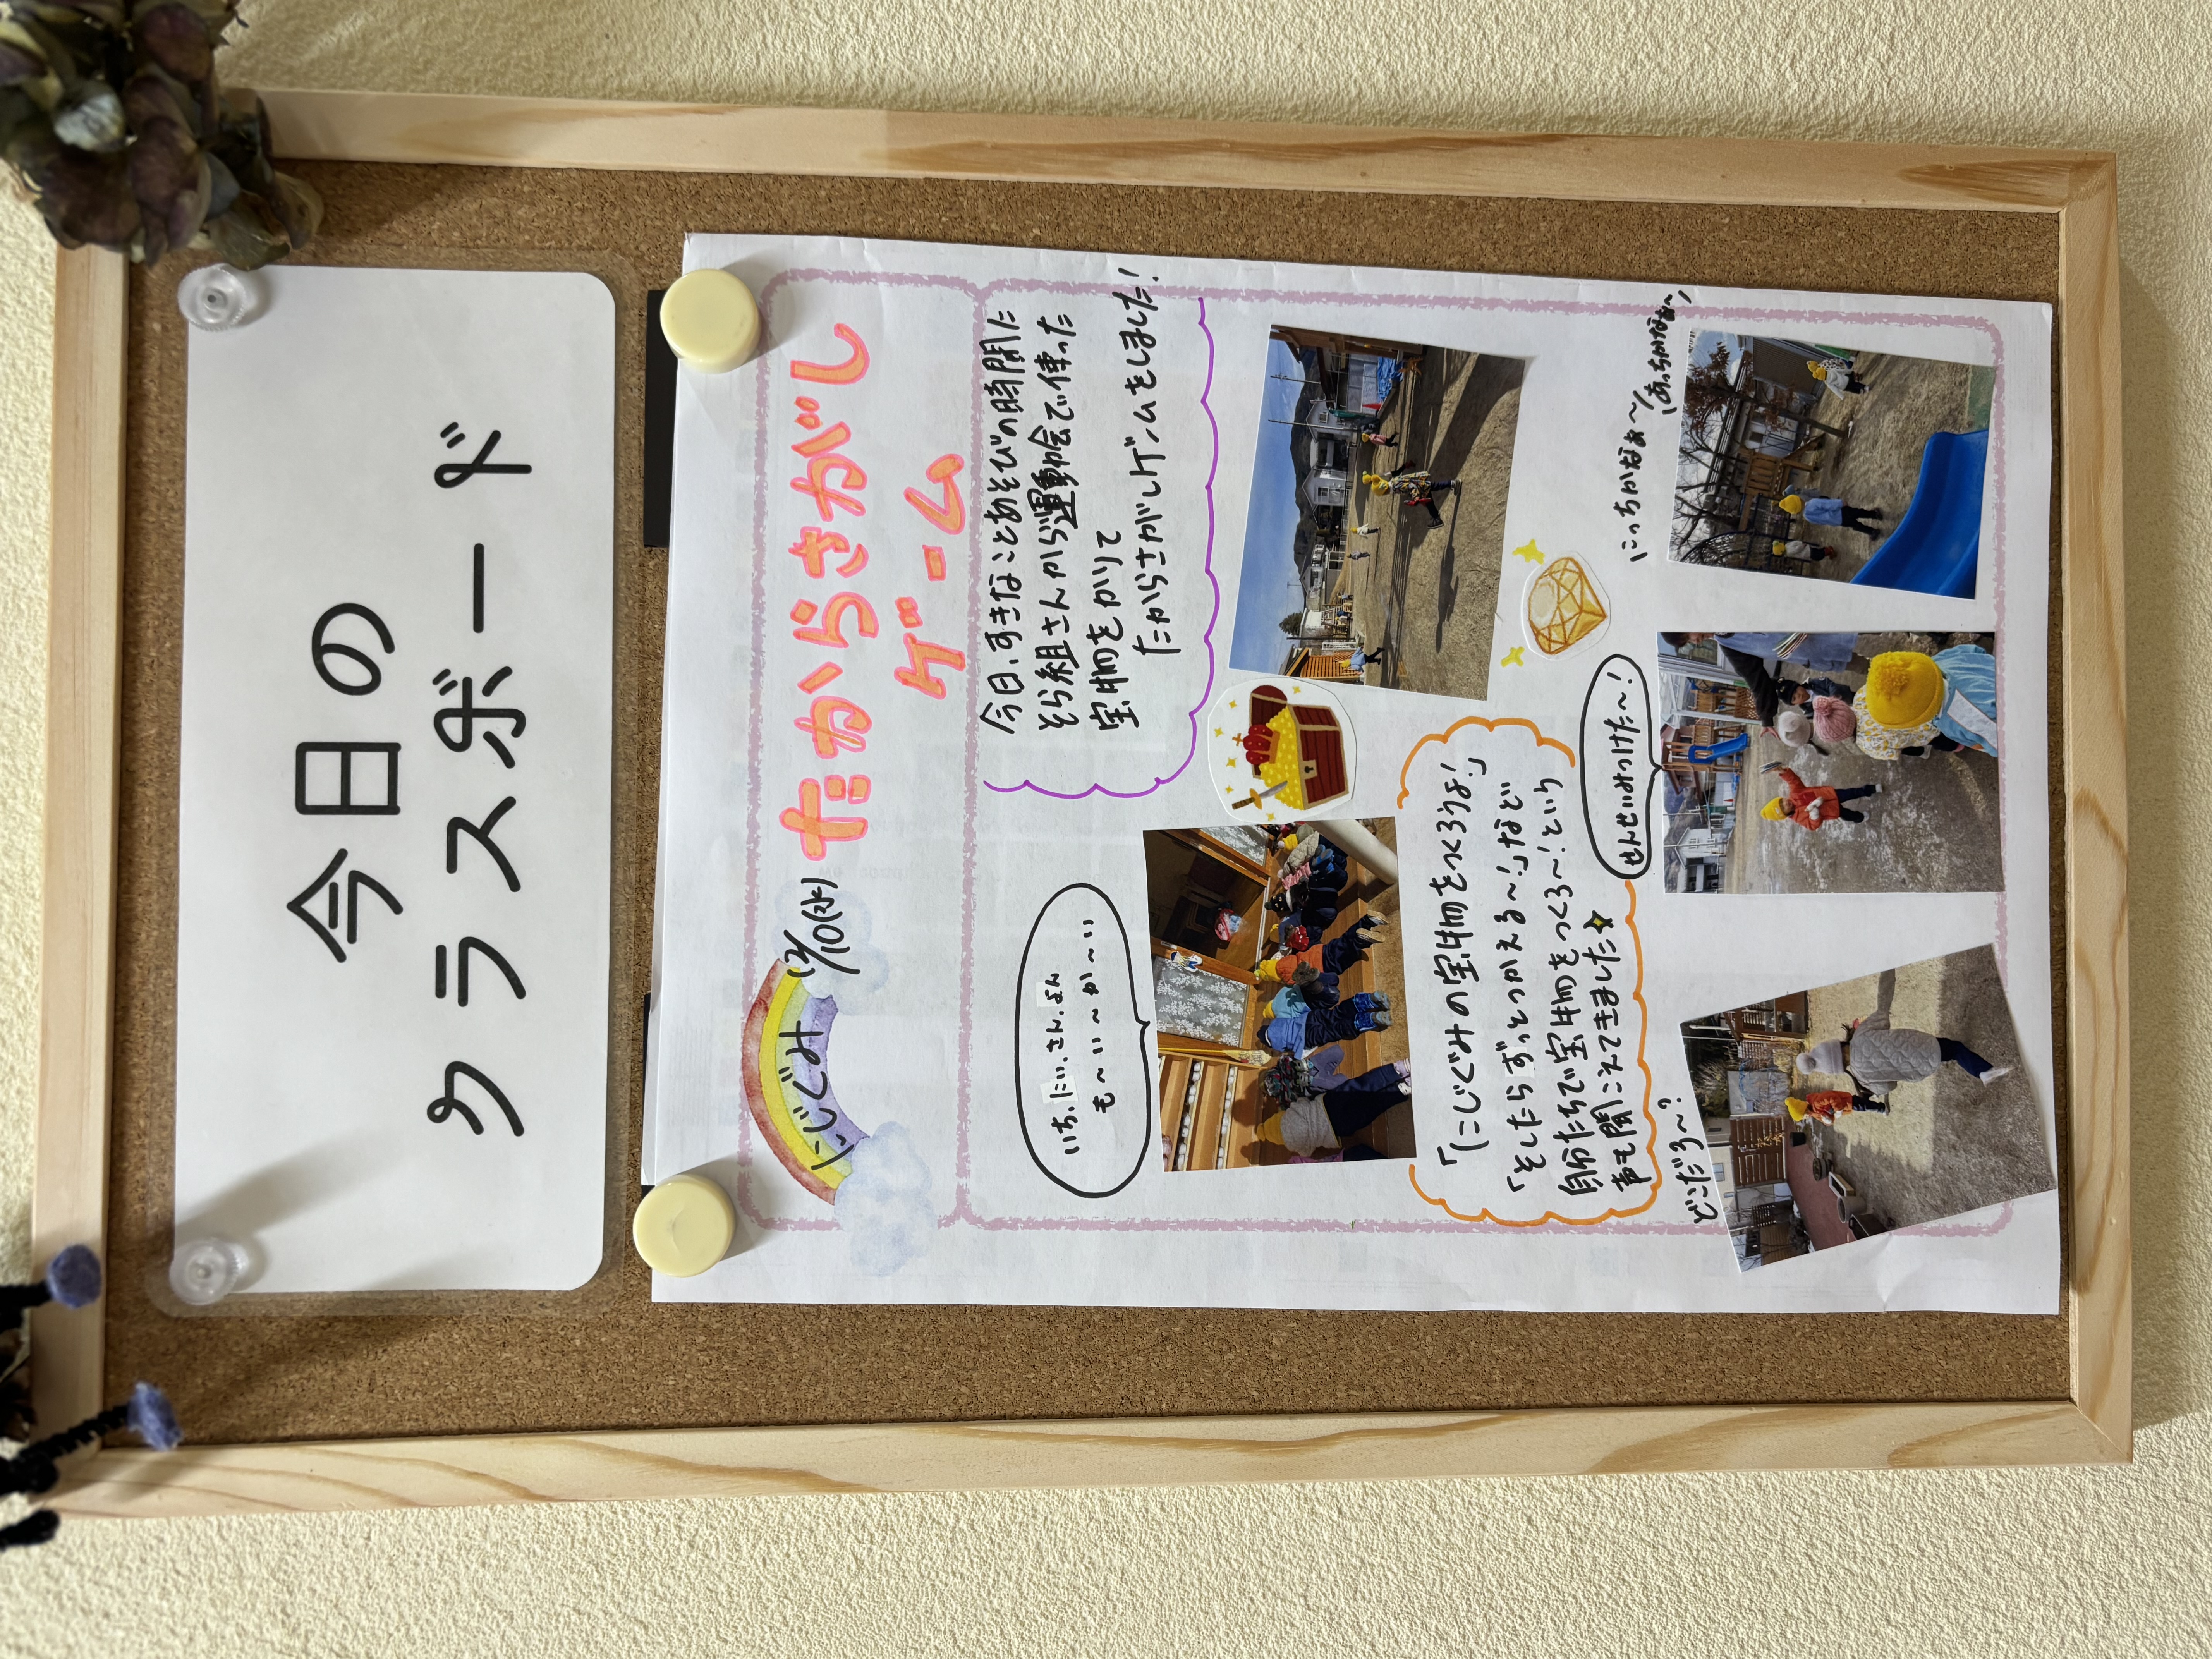 今日の
クラスボード
にじぐみ
12/10(水)
たからさがし
ゲーム
今日、すきなことあそびの時間に
そら組さんから運動会で使った
宝物をかりて
たからさがしゲームをしました!
いち、にい、さん、よん
も〜い〜か〜い
「にじぐみの宝物をつくろうよ!」
「そしたらずっとつかえる〜!」など
自分たちで宝物をつくろ〜!という
声も聞こえてきました
せんせいみつけた〜!
こっちかなぁ〜
あっちかなぁ〜
どこだろ〜?